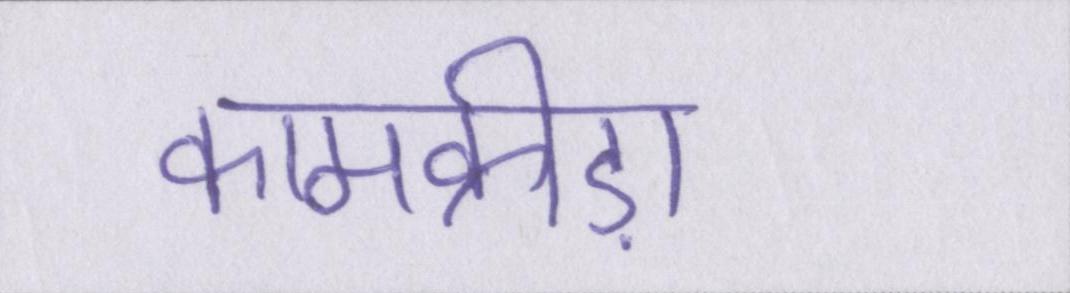 कामक्रीड़ा